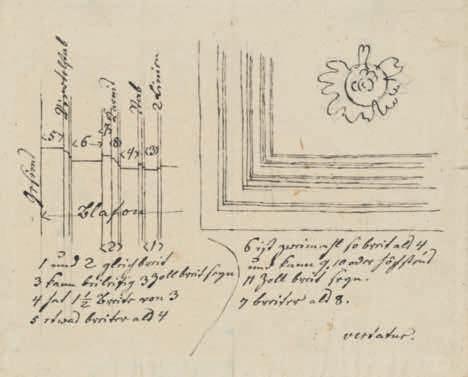 Viertelstab
Karnis
Stab
2 Linien
Gesims
Plafon
<5> <6> <8> <4> <3>
<2> <1>
1 und 2 gleichbreit
3 kann beiläufig 3 Zoll breit seyn
4 hat 1 1/2 Breite von 3
5 etwas breiter als 4
6 ist zweimahl so breit als 4
und kann 9, 10 oder höchstens
11 Zoll breit seyn.
7 breiter als 8.
vertatur.